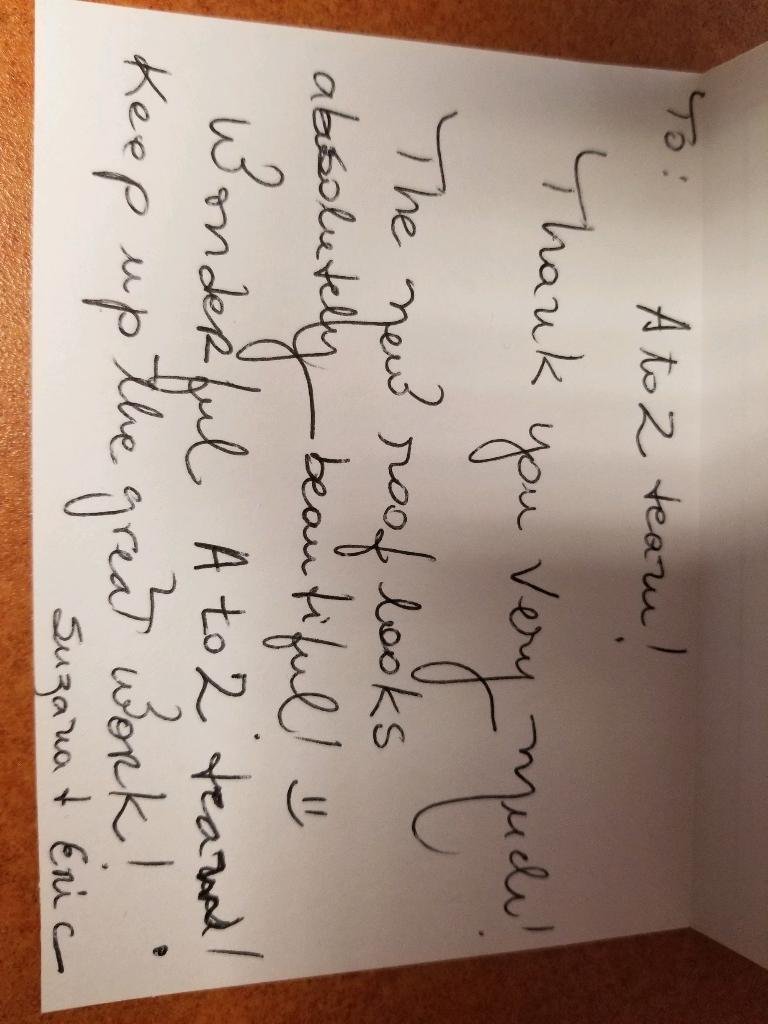 To:
A to Z team!
Thank you very much!
The new roof looks
absolutely beautiful! =)
Wonderful A to Z team!
Keep up the great work!
Suzana + Eric